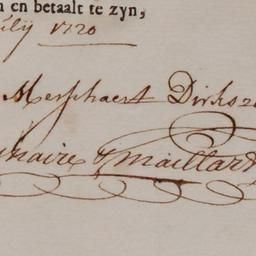 en betaalt te zyn,
July 1720
Merschaert Dirksz
& Maillard